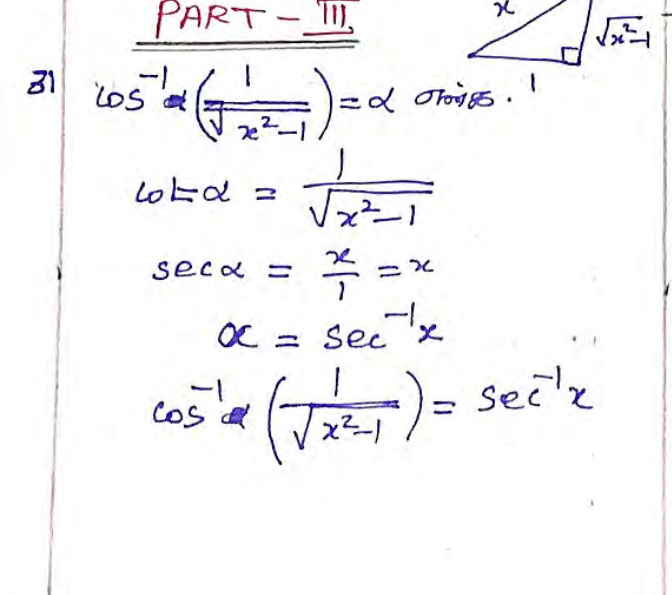 PART - III.
x
√x²-1
1
31 cos⁻¹ (1/√x²-1) = α என்க.
cot α = 1/√x²-1
sec α = x/1 = x
α = sec⁻¹x
cos⁻¹ (1/√x²-1) = sec⁻¹x